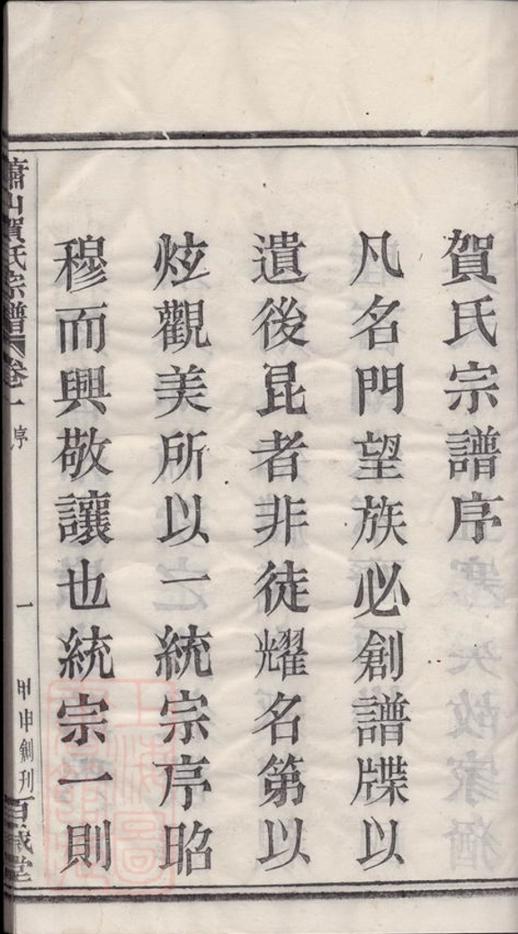 賀氏宗譜序
凡名門望族必創譜牒以
遺後昆者非徒耀名第以
炫觀美所以一統宗序昭
穆而興敬讓也統宗一則
蕭山賀氏宗譜 卷一 序 一 甲申創刊 百歲堂